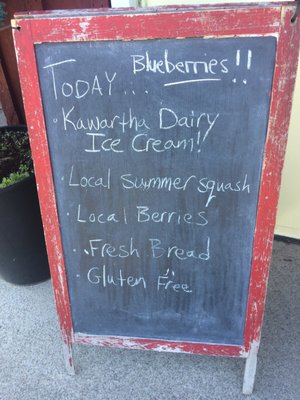 Blueberries!!
TODAY...
· Kawartha Dairy
Ice Cream!
· Local Summer squash
· Local Berries
· Fresh Bread
· Gluten Free